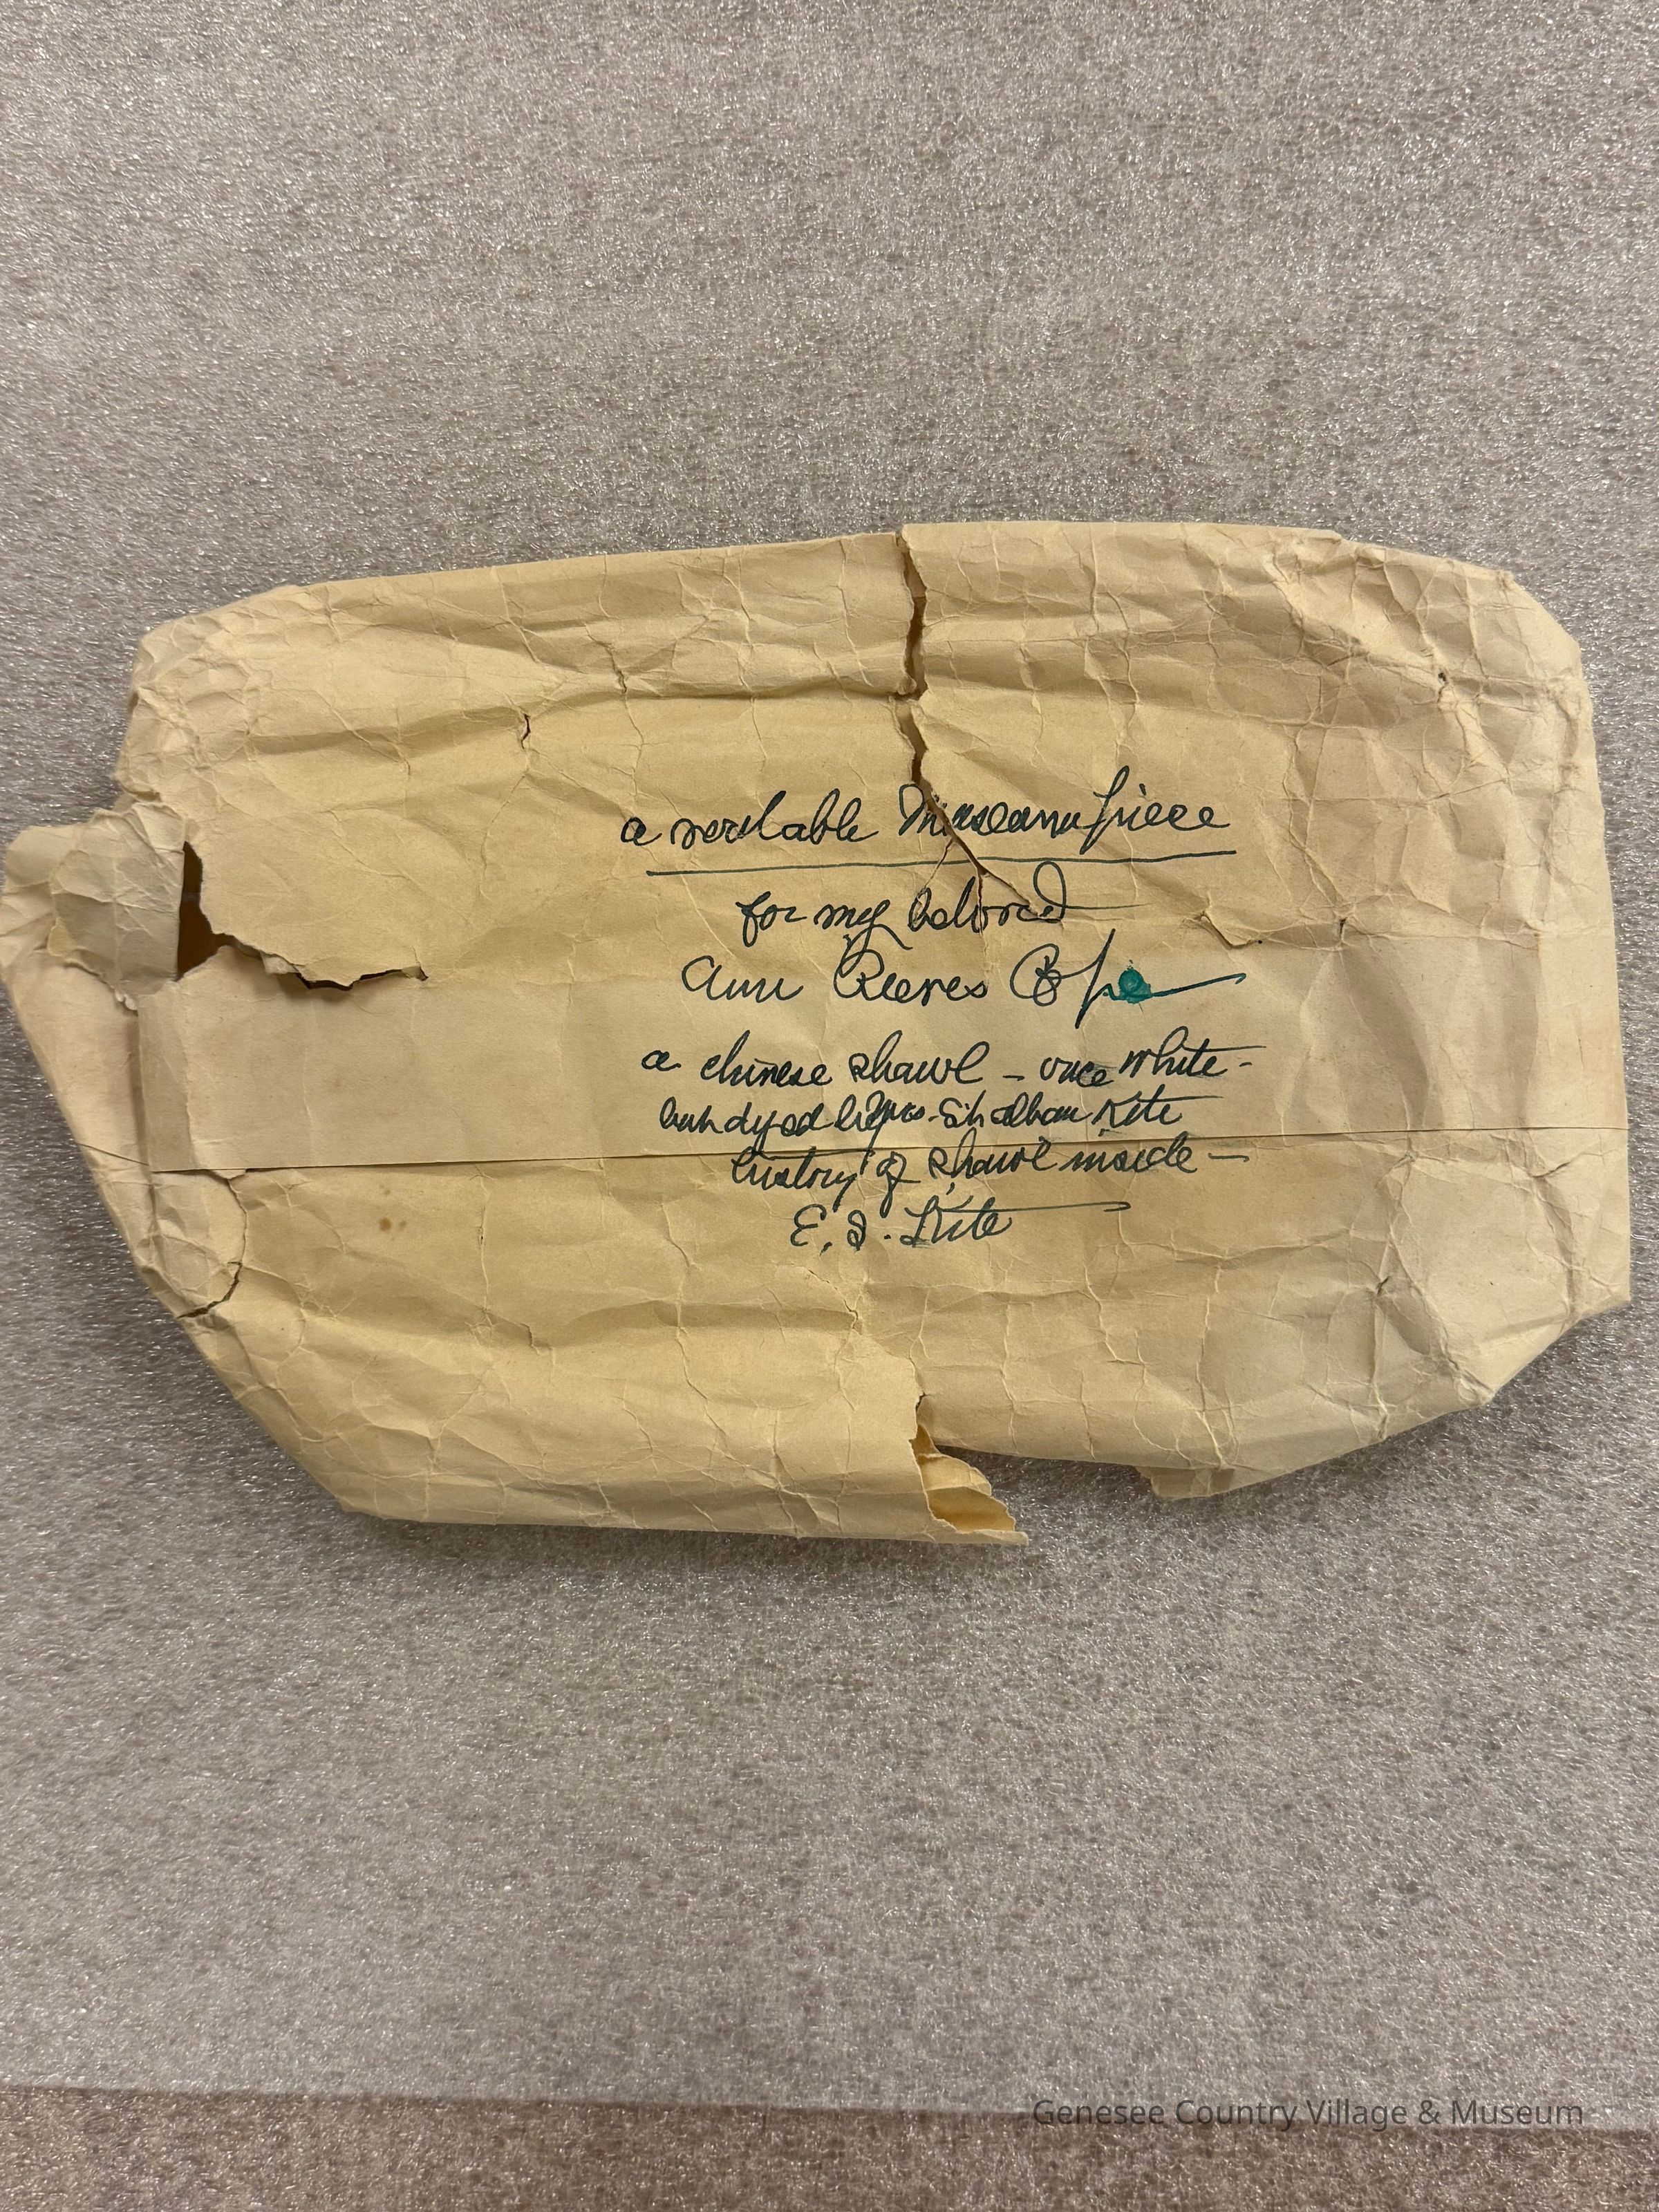 a veritable Museum piece
for my beloved
Ann Reeves
a chinese shawl – once white –
but dyed by Mrs. St Alban Kite
history of shawl inside –
E. S. Kite
Genesee Country Village & Museum